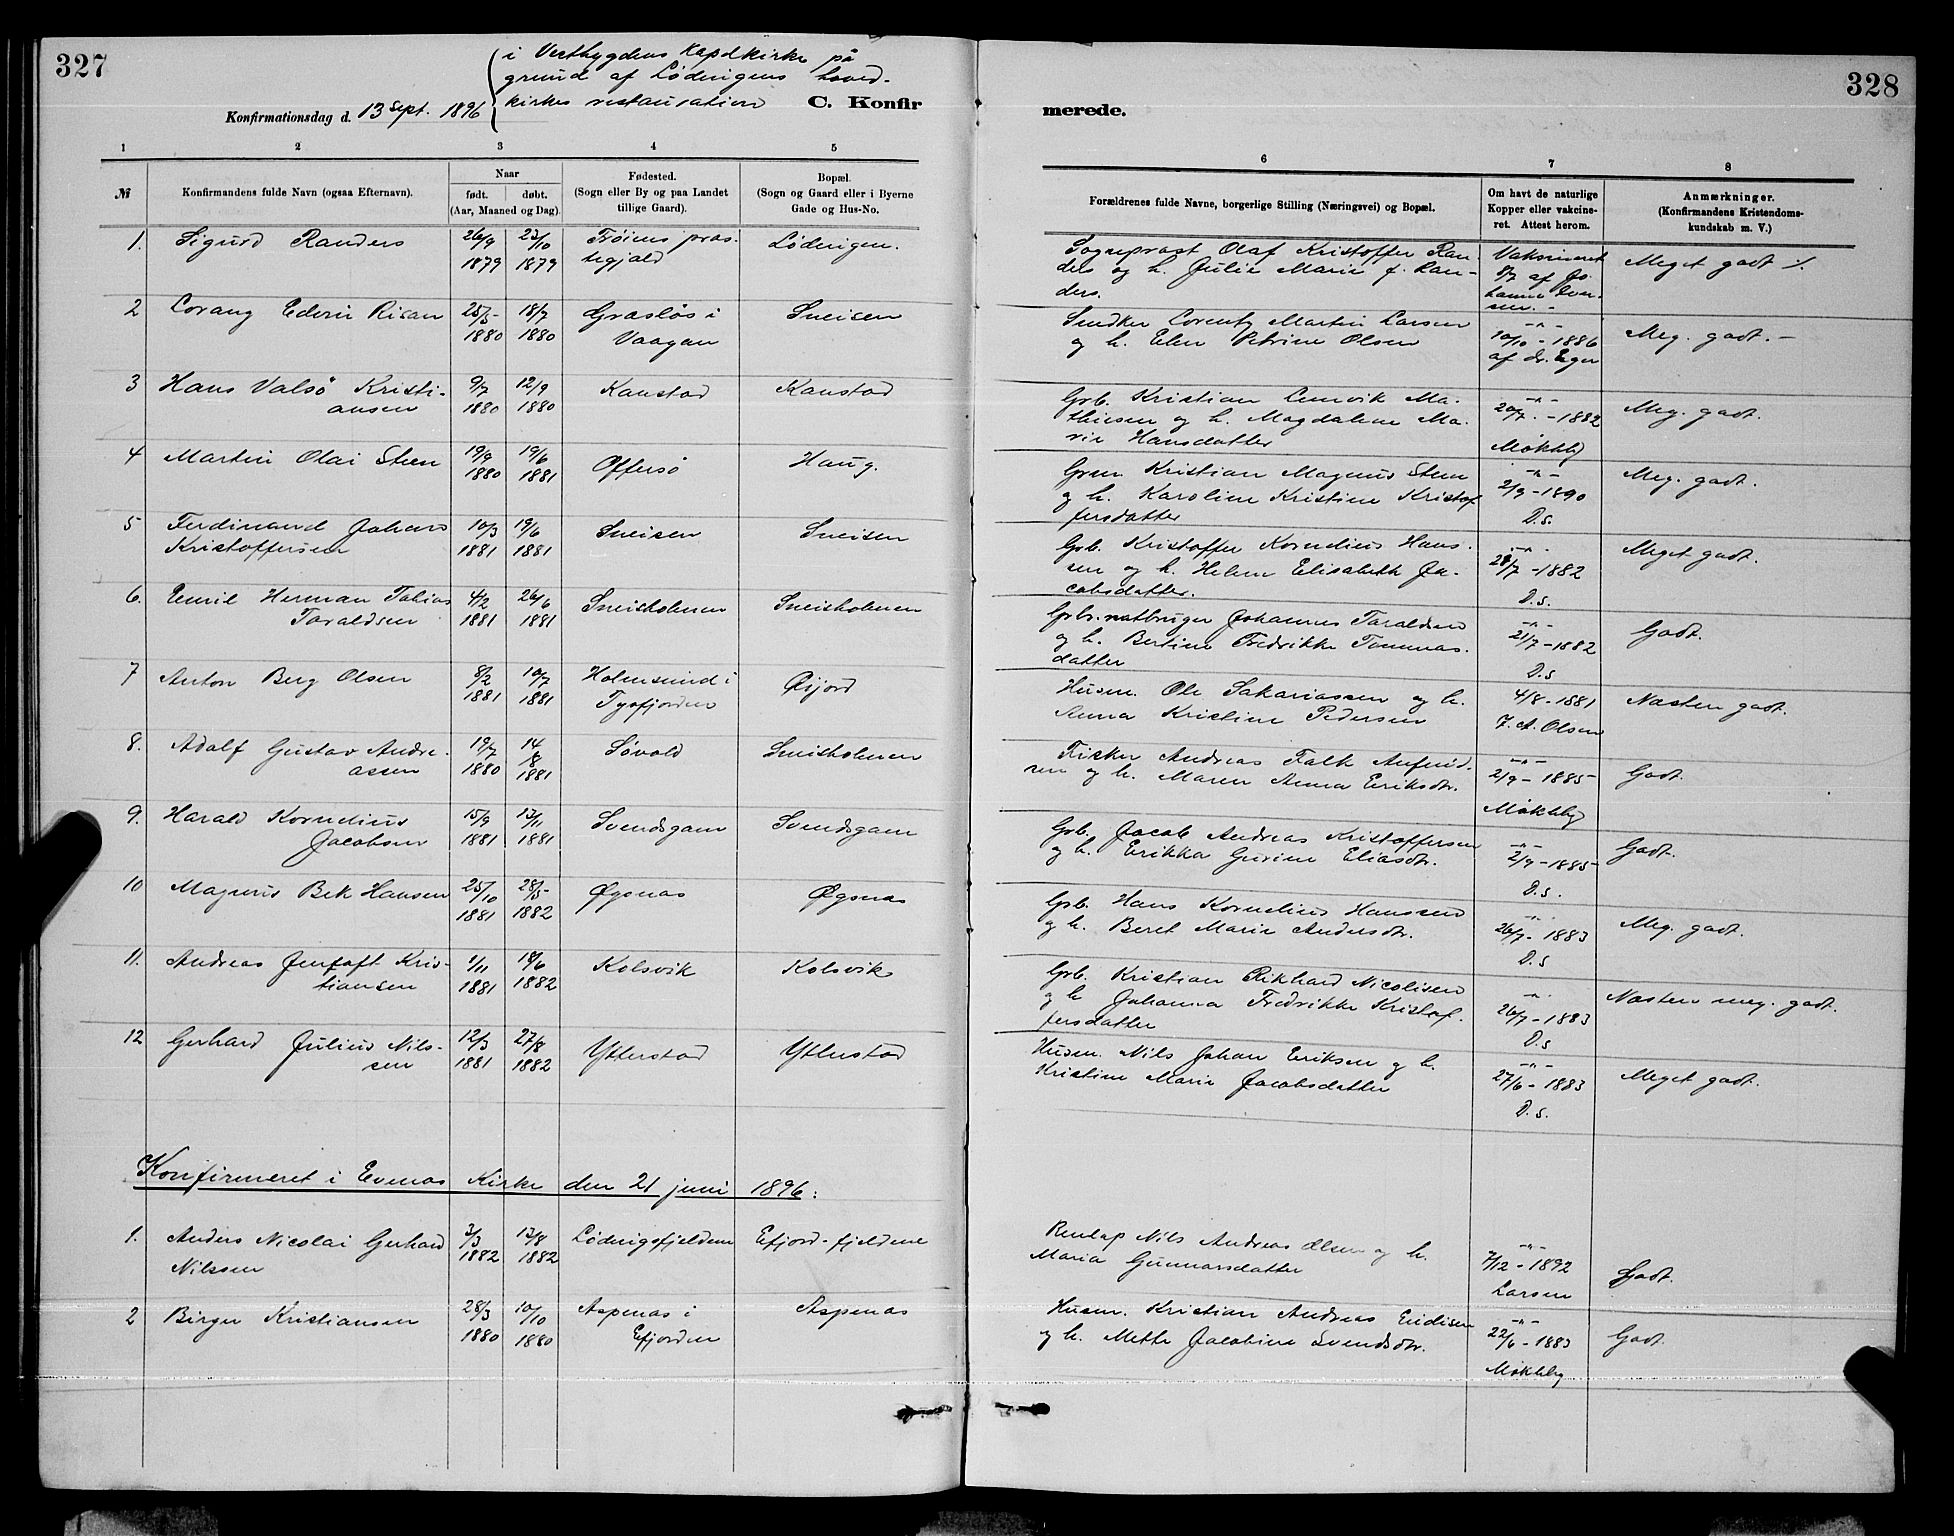 327
328
i Vestbygdens Kapelkirke på
grund af Lødingens hoved-
kirkes restauration
Konfirmationsdag d. 13 Sept. 1896
C. Konfir
merede.
1 2 3 4 5
6 7 8
№
Konfirmandens fulde Navn (ogsaa Efternavn).
Naar
født. døbt.
(Aar, Maaned og Dag).
Fødested.
(Sogn eller By og paa Landet
tillige Gaard).
Bopæl.
(Sogn og Gaard eller i Byerne
Gade og Hus-No.
Forældrenes fulde Navne, borgerlige Stilling (Næringsvei) og Bopæl.
Om havt de naturlige
Kopper eller vakcine-
ret. Attest herom.
Anmærkninger.
(Konfirmandens Kristendoms-
kundskab m. V.)
1. Sigurd Randers 26/9 1879 23/10 1879
Trøiens præs-
tegjæld
Lødingen.
Sogneprest Olaf Kristoffer Ran-
ders og h. Julie Marie f. Ran-
ders.
Vaksineret
af Jo-
hanne Iver-
sen. -
Meget godt ⁒
2 Lorang Edvin Risan 25/5- 1880 18/7 1880
Græsløs i
Vaagan
Sneisen
Smidker Lorentz Martin Larsen
og h. Elen Petrine Olsen
-"-
10/10 - 1886
af dr. Eger
Meg. godt. -
3 Hans Valsö Kristi-
ansen
9/7 1880 12/9 1880
Kanstad
Kanstad
Grb. Kristian Lemvik Ma-
thiesen og h. Magdalene Ma-
rie Hansdatter
-"-
20/7. - 1882
Møkleby
Meg. godt.
4 Martin Olai Steen 19/9 1880 19/6 1881
Offersø
Haug.
Grm Kristian Magnus Steen
og h. Karoline Kristine Kristof
fersdatter
-"-
2/9 - 1890
D.s.
Meg. godt.
5 Ferdinand Johans
Kristoffersen
10/3 1881 19/6 1881
Sneisen
Sneisen
Grb. Kristoffer Kornelius Hans-
sen og h. Helene Elisabeth Ja-
cobsdatter.
-"-
28/7 - 1882
D.s.
Meget godt.
6. Emil Herman Tobias
Taraldsen
4/2 1881 26/6 1881
Sneisholmen
Sneisholmen
Grbr. notbruger Johannes Taraldsen
og h. Bertine Fredrikke Tommas-
datter
-"-
21/7 - 1882
D.s
Godt.
7 Anton Berg Olsen 8/2 1881 10/7 1881
Holmsund i
Tysfjorden
Øijord
Husm. Ole Sakariassen og h.
Anna Kristine Pedersen
4/8 - 1881
F. A. Olsen
Næsten godt.
8. Adolf Gustav Andre-
assen
19/7 1880 14/8 1881
Søvold
Sneisholmen
Fisker Andreas Falk Anfind-
sen og h. Maren Anna Eriksdtr.
-"-
2/9 - 1885-
Møkleby
Godt.
9. Harald Kornelius
Jacobsen
15/9 1881 13/11 1881
Svendsgam
Svendsgam
Grb. Jacob Andreas Kristoffersen
og h. Erikka Gurine Eliasdtr.
-"-
2/9 - 1885-
D.s.
Godt.
10 Magnus Bek Hansen 25/10 1881 28/5- 1882
Øgsnæs
Øgsnæs
Grb. Hans Kornelius Hanssen
og h. Beret Marie Andersdtr.
-"-
26/7 - 1883
D.s
Meg. godt.
11. Andreas Jentoft Kris-
tiansen
1/11 1881 18/6 1882
Kolsvik
Kolsvik
Grb. Kristian Rikhard Nicolisen
og h Johanna Fredrikke Kristof-
fersdatter
-"-
26/7 - 1883
D.s
Næsten meg. godt.
12 Gerhard Julius Nils-
sen
12/3 1881 27/8 1882
Ytterstad
Ytterstad
Husm. Nils Johan Eriksen og h.
Kristine Marie Jacobsdatter
-"-
27/6 - 1883
D.s.
Meget godt.
Konfirmeret i Evenæs Kirke den 21 juni 1896:
1. Anders Nicolai Gerhard
Nilssen
3/3 1882 13/8 1882
Lødingsfjeldene
Efjord-fjeldene
Renlap Nils Andreas Olsen og h.
Maria Gunnarsdatter
-"-
7/12 - 1892
Larsen
Godt.
2 Birger Kristiansen 28/3 1880 10/10 1880
Aspenæs i
Efjorden
Aspenæs
Husm. Kristian Andreas Endisen
og h. Mette Jacobine Svendsdtr.
-"-
22/6 - 1883
Møkleby
Godt.